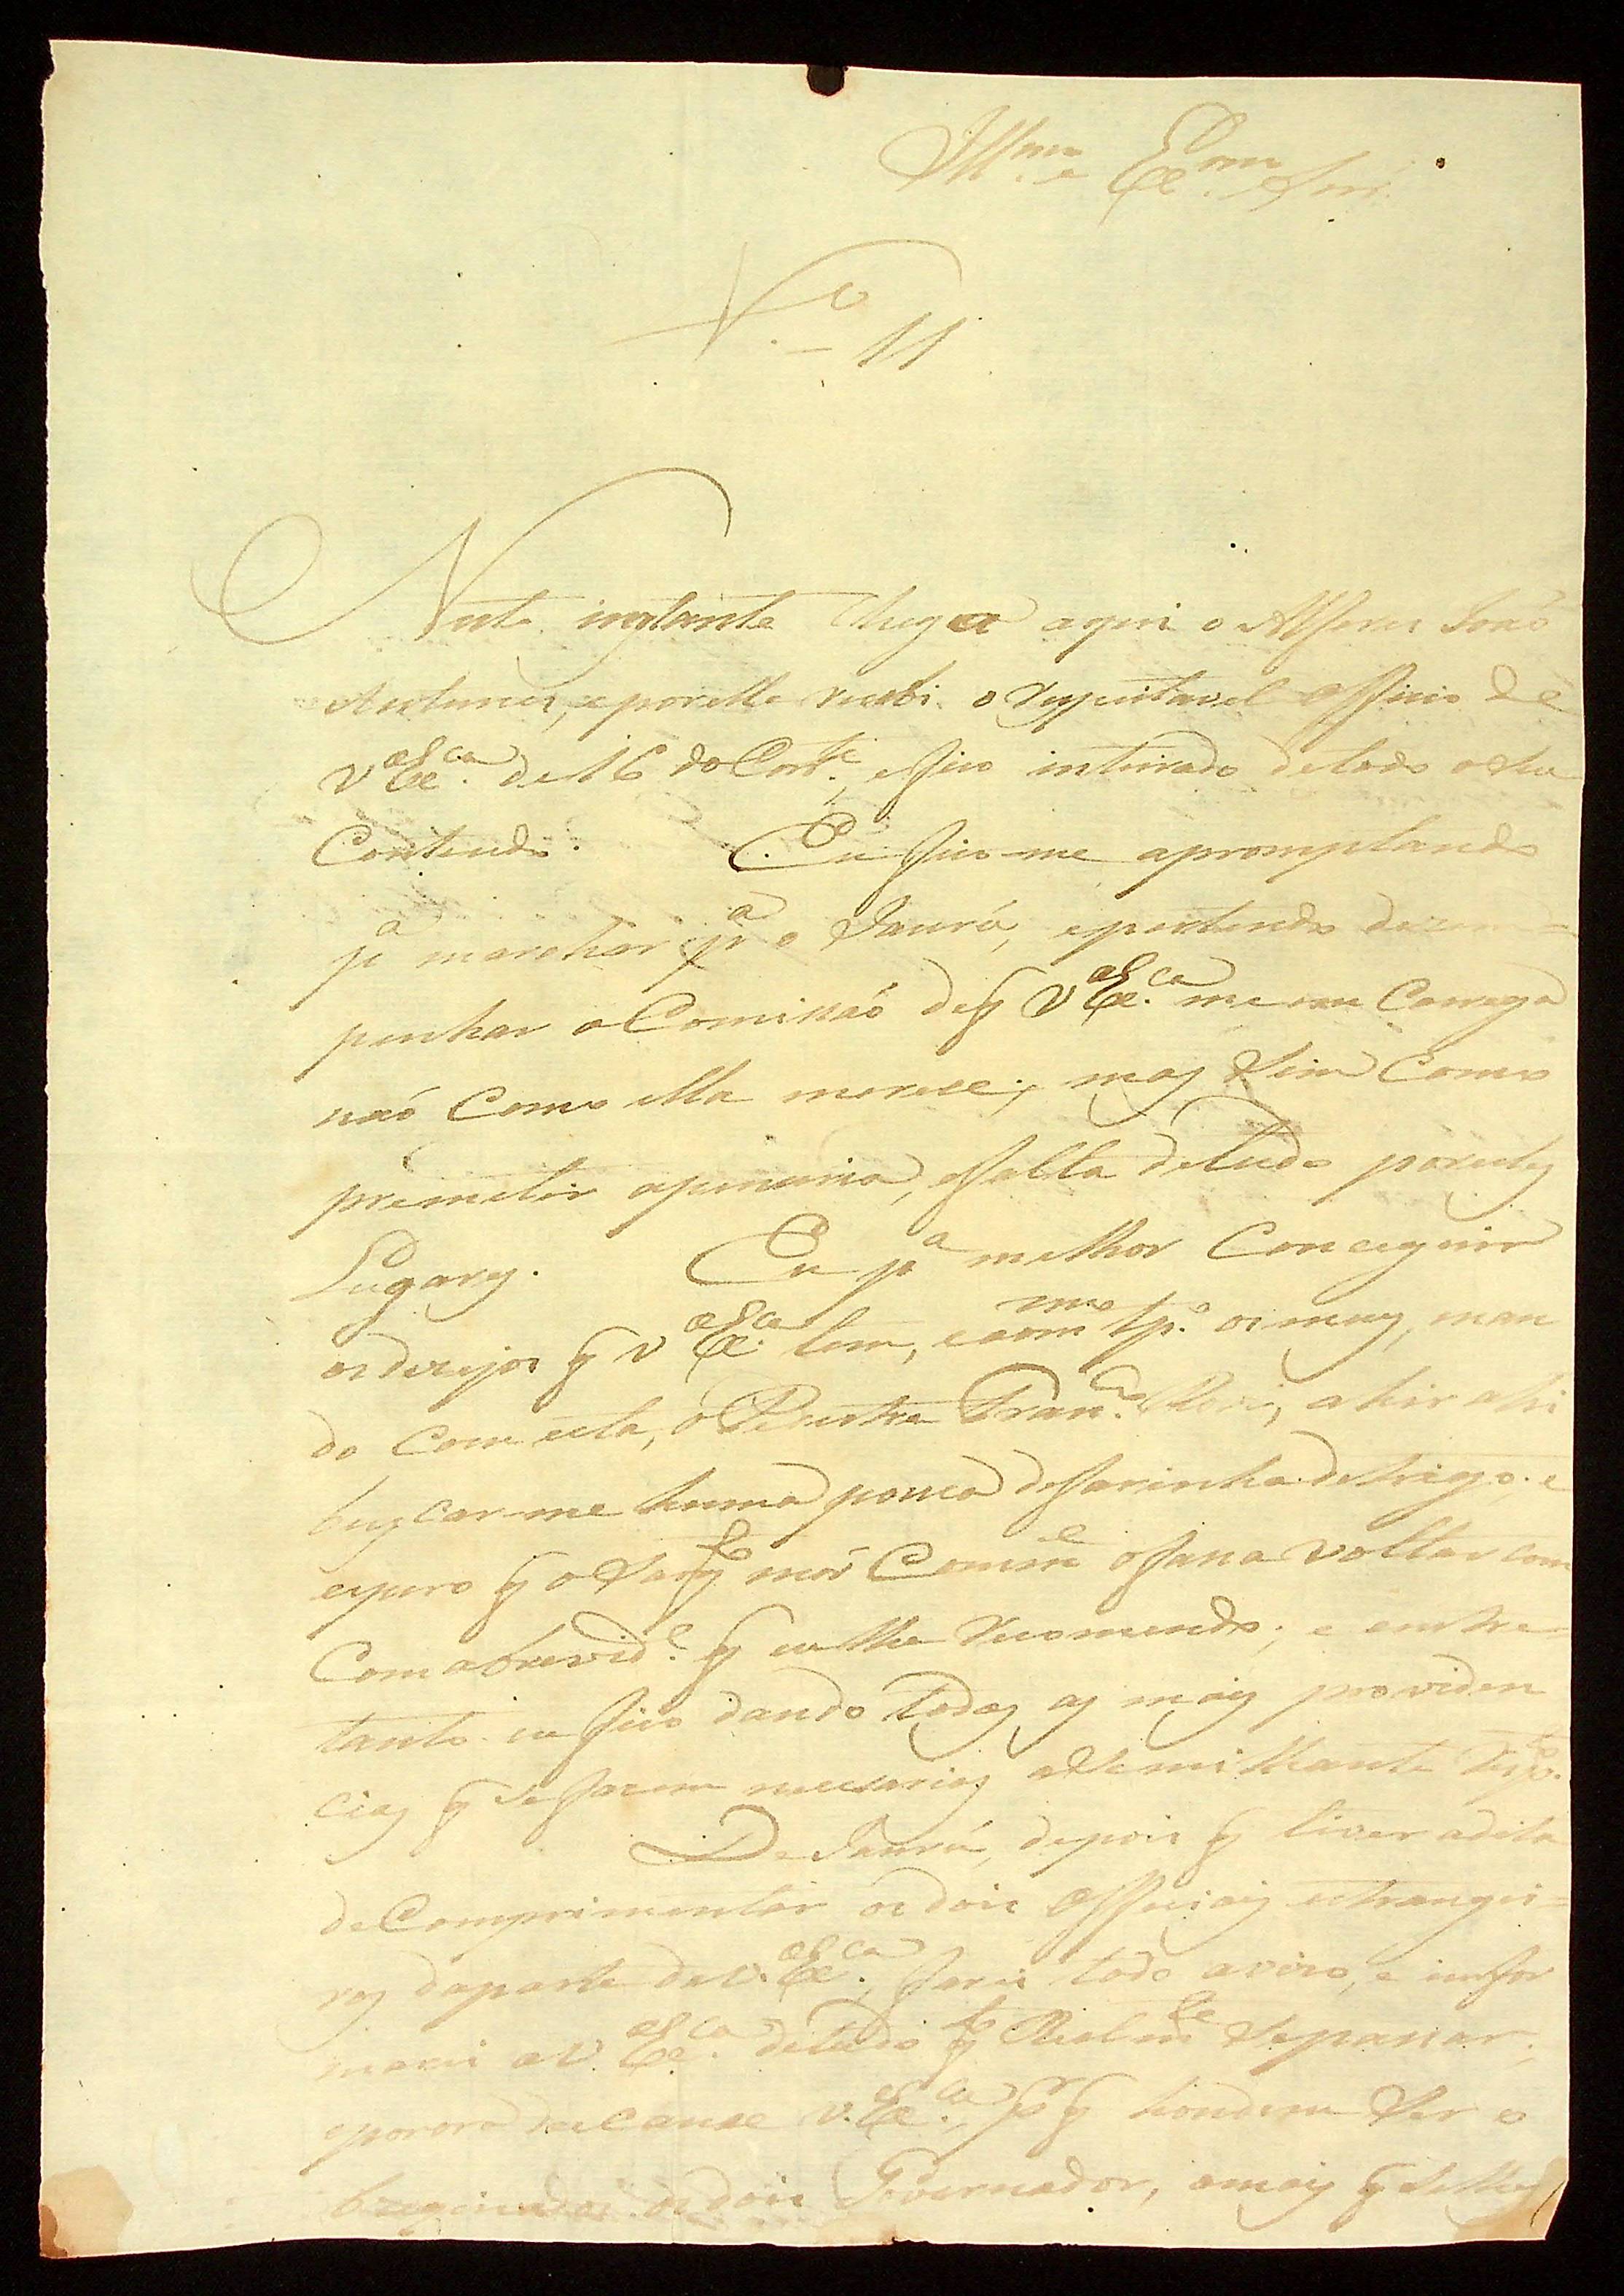 Ill.mo e Ex.mo Snr.
N.o 11
Neste instante chega aqui o Alferes Joaõ
Antunes, e por elle recebi o respeitavel officio de
V Ex.ca de 16 do Corr.te, e fico inteirado de todo o seu
Contendo. Eu fico-me apromptando
p.a marchar p.a o Jaurú, e pertendo dezem=
penhar a Comissaõ de q V Ex.ca me em Carrega
naõ como ella merece; mas sim como
premetir apenuria, e falta de tudo por estes
Lugares. Eu p.a melhor Conceguir
os dezejos q V Ex.ca tem, e ao m.mo tp.o os meus, man
do com esta, o Pedestre Fran.co a hir ahi
buscar-me huma pouca de farinha de trigo. e
espero q o Sarg.to mór Comm.e o faça voltar com
Com a brevid.e q eu lhe recomendo; e entre
tanto eu fico dando todas as mais providen
cias q se fazem necessarias a semilhante resp.to.
De Jaurú, depois q tiver a dita
de Comprimentar os dois Officiais estrangei=
ros da parte de V. Ex.ca, farei todo avizo, e infor
marei a V. Ex.ca de tudo q Realm.te se passar;
e por ora descance V. Ex.ca, q
os dois Governador, a mais q se lhes